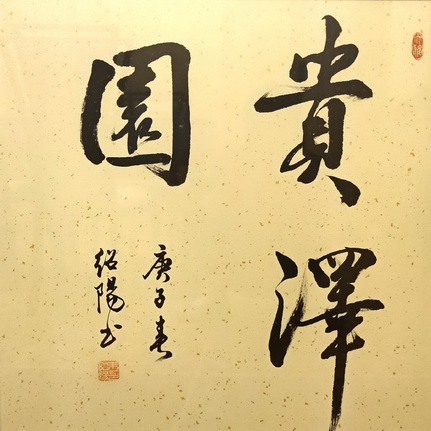 貴澤
園
庚子春
紹陽书